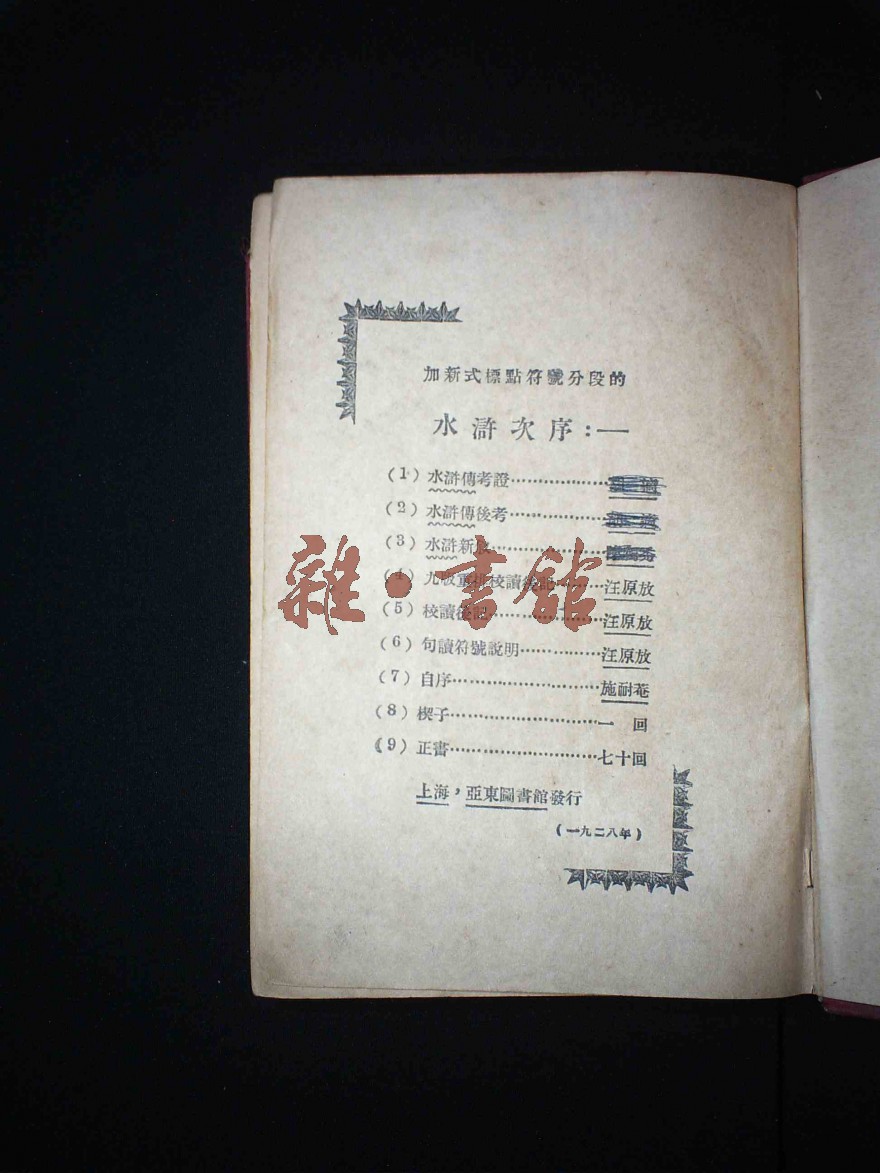 加新式標點符號分段的
水滸次序:—
(1) 水滸傳考證…………………
(2) 水滸傳後考…………………
(3) 水滸新敘…………………
(4) 九版重排校讀後記…………汪原放
(5) 校讀後記…………………汪原放
(6) 句讀符號說明……………汪原放
(7) 自序…………………………施耐菴
(8) 楔子…………………………一 回
(9) 正書…………………………七十回
上海,亞東圖書館發行
(一九二八年)
雜·書館